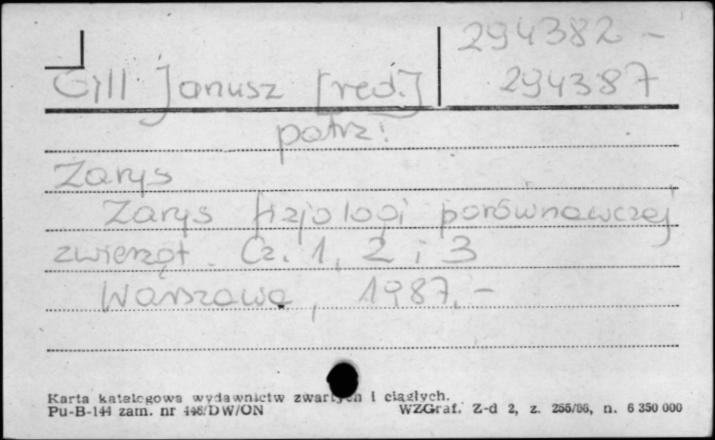 294382 -
Gill Janusz [red.] 294387
patrz:
Zarys
Zarys fizjologi porównawczej
zwierząt. Cz. 1, 2 i 3
Warszawa, 1987.-
Karta katalogowa wydawnictw zwartych i ciągłych.
Pu-B-144 zam. nr 446/DW/ON WZGraf. Z-d 2, z. 255/86, n. 6 350 000